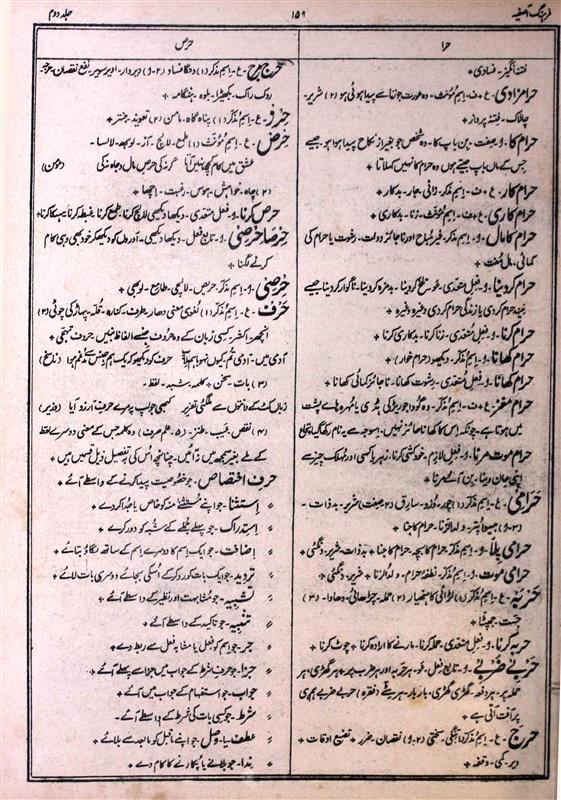 فرہنگ آصفیہ
۱۵۹
جلد دوم
حرا
حرص
فتنہ انگیز۔ فسادی +
حرامزادی۔ ع + ف۔ اسم مؤنث۔ وہ عورت جو زنا سے پیدا ہوئی ہو (۲) شریر۔
چالاک۔ فتنہ پرداز +
حرام کا۔ و۔ صفت۔ بن باپ کا۔ وہ شخص جو بغیر از نکاح پیدا ہوا ہو جیسے
جس کے ماں باپ جیتے ہوں وہ حرام کا نہیں کہلاتا +
حرام کار۔ ع + ف۔ اسم مذکر۔ زانی۔ بدکار +
حرام کاری۔ ع + ف۔ اسم مؤنث۔ زنا۔ بدکاری +
حرام کا مال۔ و۔ اسم مذکر۔ غیر مباح اور ناجائز دولت۔ رشوت یا حرام کی
کمائی۔ مال مفت +
حرام کر دینا۔ و۔ فعل متعدی۔ تلخ کر دینا۔ بے مزہ کر دینا۔ ناگوار کر دینا جیسے
نیند حرام کر دی یا زندگی حرام کر دی وغیرہ وغیرہ +
حرام کرنا۔ و۔ فعل متعدی۔ زنا کرنا۔ بدکاری کرنا +
حرام کھانا۔ و۔ اسم مذکر۔ دیکھو (حرام خوار) +
حرام کھانا۔ و۔ فعل متعدی۔ رشوت کھانا۔ ناجائز کمائی کھانا +
حرام مغز۔ ع + ف۔ اسم مذکر۔ وہ گودا جو ریڑ کی ہڈی یا مُہرہ ہائے پشت
میں ہوتا ہے۔ چونکہ اس کا کھانا جائز نہیں۔ اس وجہ سے یہ نام رکھا گیا
حرام موت مرنا۔ و۔ فعل لازم۔ خودکشی کرنا۔ زہر یا کسی اور مہلک چیز سے
اپنی جان دینا۔ بن آئے مرنا +
حرامی۔ ع۔ اسم مذکر (۱) چور۔ دزد۔ سارق (۲) صفت) شریر۔ بد ذات۔
ولدالزنا۔ حرام کا جنا +
حرامی پلا۔ و۔ اسم مذکر۔ حرام کا بچہ۔ حرام کا جنا + بد ذات۔ شریر۔ دنگئی +
حرامی موت۔ و۔ اسم مذکر۔ نطفۂ حرام۔ ولدالزنا + شریر۔ دنگئی +
حربہ۔ ع۔ اسم مذکر (۱) لڑائی کا ہتھیار (۲) حملہ۔ چڑھائی۔ دھاوا۔ (۳)
جست۔ جھپٹا +
حربہ کرنا۔ و۔ فعل متعدی۔ حملہ کرنا۔ مارنے کا ارادہ کرنا + چوٹ کرنا +
حربے ضربے۔ و۔ تابع فعل۔ ہر حربہ اور ہر ضرب پر + ہر گھڑی۔ ہر
حملہ پر۔ ہر دفعہ۔ گھڑی گھڑی۔ بار بار۔ (فقرہ) حربے ضربے ہم ہی
پر آفت آتی ہے +
حرج۔ ع۔ اسم مذکر (۱) تنگی۔ سختی (۲۔ و) نقصان۔ ضرر + تضییع اوقات +
دیر۔ کمی۔ وقفہ +
حرج مرج۔ ع۔ اسم مذکر (۱) دنگا فساد (۲۔ و) دیر دار۔ اویر سویر۔ نفع نقصان۔
روک راک۔ بکھیڑا۔ بلوہ۔ ہنگامہ +
حرز۔ ع۔ اسم مذکر (۱) پناہ گاہ۔ مامن (۲) تعویذ۔ جنتر +
حرص۔ ع۔ اسم مؤنث (۱) طمع۔ لالچ۔ آز۔ لوبھ۔ لالسا۔
(مومن)
(۲) چاہ۔ خواہش۔ ہوس۔ رغبت۔ اچھا +
حرص کرنا۔ و۔ فعل متعدی۔ دیکھا دیکھی لالچ کرنا۔ طمع کرنا۔ غبطہ کرنا۔
حرصا حرصی۔ و۔ تابع فعل۔ دیکھا دیکھی۔ اوروں کو دیکھ کر خود بھی وہی کام
کرنے لگنا +
حرصی۔ و۔ اسم مذکر۔ حریص۔ لالچی۔ طامع۔ لوبھی +
حرف۔ ع۔ اسم مذکر (۱) لغوی معنی دھار۔ طرف۔ کنارہ۔ قلہ۔ پہاڑ کی چوٹی (۲)
اچھر۔ اکشر۔ کسی زبان کے وہ حروف جنسے الفاظ بنیں۔ حروف تہجی +
(ناسخ)
(۳) بات۔ سخن + کلمہ۔ شبد۔ لفظ۔
(وزیر)
(۴) نقص۔ عیب۔ طنز۔ (۵۔ علم صرف) وہ کلمہ جس کے معنی دوسرے لفظ
کے ملے بغیر سمجھ میں نہ آئیں۔ چنانچہ اس کی تفصیل ذیل میں ہے +
حرف اختصاص۔ جو خصوصیت پیدا کرنے کے واسطے آئے +
〃 استثنا۔ جو اپنے مستثنے منہ کو خاص یا جدا کردے +
〃 استدراک۔ جو پہلے جملے کے شبہ کو دور کرے +
〃 اضافت۔ جو ایک اسم کا دوسرے اسم کے ساتھ لگاؤ بتائے +
〃 تردید۔ جو ایک بات کو رد کر کے اسکی بجائے دوسری بات لائے +
〃 تشبیہ۔ جو مشابہت اور نظیر کے واسطے آئے +
〃 تنبیہ۔ جو تاکید کے واسطے آئے +
〃 جر۔ جو اسم کو فعل یا مشابہ فعل سے ربط دے +
〃 جزا۔ جو حرف شرط کے جواب میں جزا سے پہلے آئے +
〃 جواب۔ جو استفہام کے جواب میں آئے +
〃 شرط۔ جو کسی بات کی شرط کے واسطے آئے +
〃 عطف یا وصل۔ جو اپنے ماقبل کو مابعد سے ملائے +
〃 ندا۔ جو بلانے یا پکارنے کا کام دے +